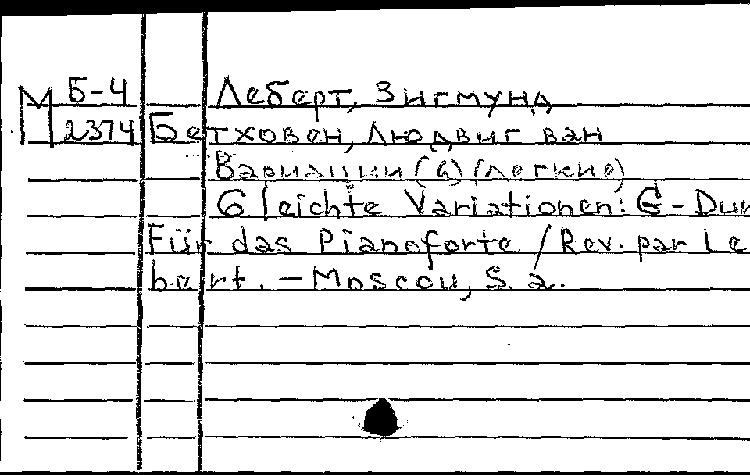 М Б-4 Леберт, Зигмунд
2374 Бетховен, Людвиг ван
Вариации (6) (легкие)
6 leichte Variationen: G-Dur
Für das Pianoforte / Rev. par Le
bert. – Moscou, S. a.